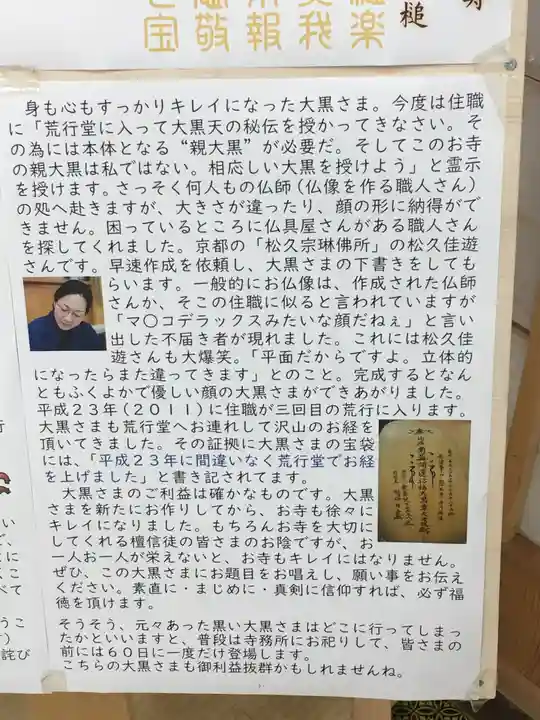 槌
楽
我
報
敬
宝
身も心もすっかりキレイになった大黒さま。今度は住職
に「荒行堂に入って大黒天の秘伝を授かってきなさい。そ
の為には本体となる“親大黒”が必要だ。そしてこのお寺
の親大黒は私ではない。相応しい大黒を授けよう」と霊示
を授けます。さっそく何人もの仏師（仏像を作る職人さん）
の処へ赴きますが、大きさが違ったり、顔の形に納得がで
きません。困っているところに仏具屋さんがある職人さん
を探してくれました。京都の「松久宗琳佛所」の松久佳遊
さんです。早速作成を依頼し、大黒さまの下書きをしても
らいます。一般的にお仏像は、作成された仏師
さんか、そこの住職に似ると言われていますが
「マ〇コデラックスみたいな顔だねぇ」と言い
出した不届き者が現れました。これには松久佳
遊さんも大爆笑。「平面だからですよ。立体的
になったらまた違ってきます」とのこと。完成するとなん
ともふくよかで優しい顔の大黒さまができあがりました。
平成２３年（２０１１）に住職が三回目の荒行に入ります。
大黒さまも荒行堂へお連れして沢山のお経を
頂いてきました。その証拠に大黒さまの宝袋
には、「平成２３年に間違いなく荒行堂でお経
を上げました」と書き記されてます。
大黒さまのご利益は確かなものです。大黒
さまを新たにお作りしてから、お寺も徐々に
キレイになりました。もちろんお寺を大切に
してくれる檀信徒の皆さまのお陰ですが、お
一人お一人が栄えないと、お寺もキレイにはなりません。
ぜひ、この大黒さまにお題目をお唱えし、願い事をお伝え
ください。素直に・まじめに・真剣に信仰すれば、必ず福
徳を頂けます。
そうそう、元々あった黒い大黒さまはどこに行ってしまっ
たかといいますと、普段は寺務所にお祀りして、皆さまの
前には６０日に一度だけ登場します。
こちらの大黒さまも御利益抜群かもしれませんね。